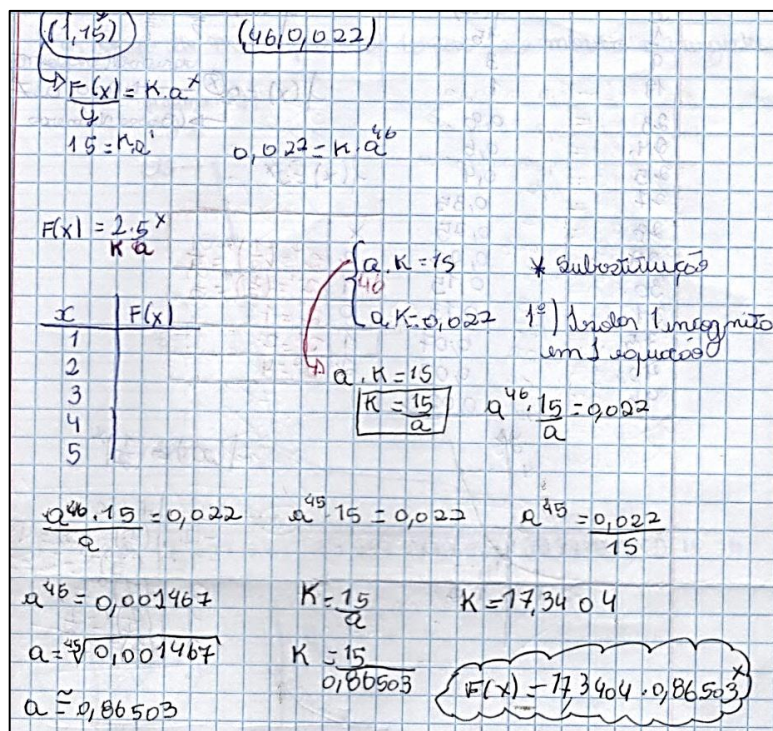 (1,15) (46,0,022)
F(x) = K.a^x
y
15 = K.a^1 0,022 = K.a^46
F(x) = 2.5^x
K a
{ a.K = 15 * Substituição
a^46.K = 0,022 1º) Isolar 1 incógnita
em 1 equação
x F(x)
1
2
3
4
5
a.K = 15
K = 15/a a^46.15/a = 0,022
a^46.15/a = 0,022 a^45.15 = 0,022 a^45 = 0,022/15
a^45 = 0,001467 K = 15/a K = 17,3404
a = ⁴⁵√0,001467 K = 15/0,86503 F(x) = 17,3404.0,86503^x
a ≅ 0,86503